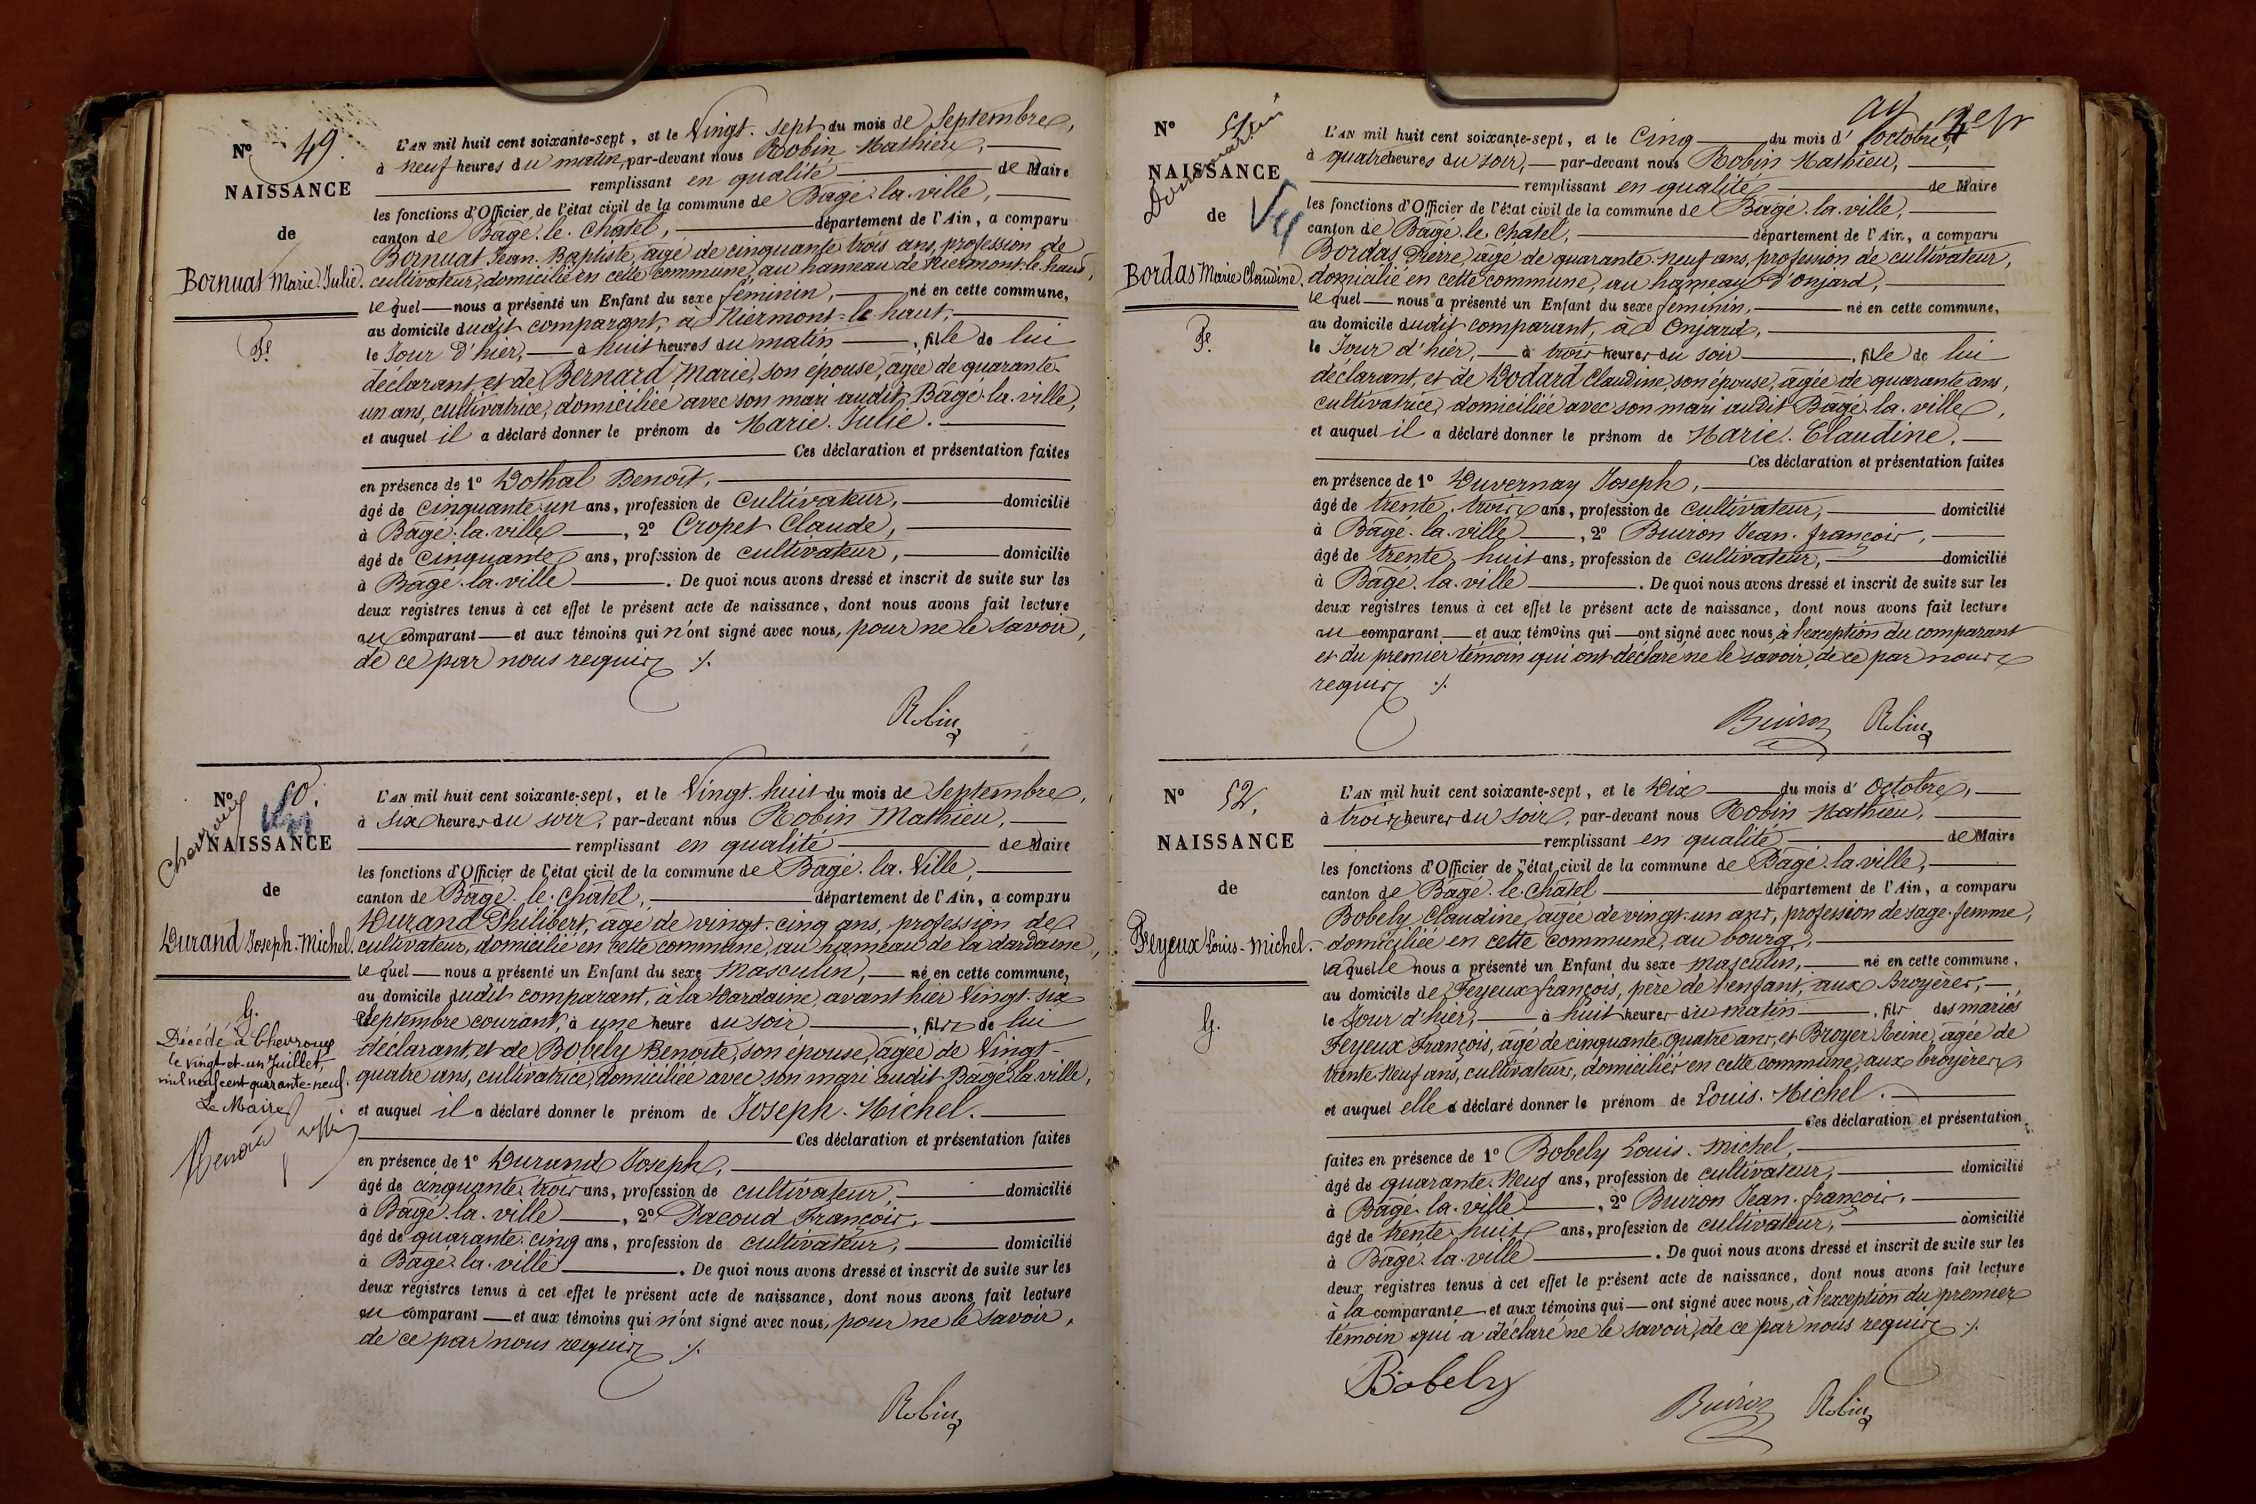 N° 49.
NAISSANCE
de
Bornuat Marie Julie.
F.
L'AN mil huit cent soixante-sept, et le Vingt-sept du mois de Septembre,
à neuf heures du matin, par-devant nous Robin Mathieu,
remplissant en qualité de Maire
les fonctions d'Officier de l'état civil de la commune de Bagé-la-ville,
canton de Bagé-le-Chatel, département de l'Ain, a comparu
Bornuat Jean-Baptiste, âgé de cinquante trois ans, profession de
cultivateur, domicilié en cette commune, au hameau de Niermont-le-haut,
lequel nous a présenté un Enfant du sexe féminin, né en cette commune,
au domicile dudit comparant, à Niermont-le-haut,
le Jour d'hier, à huit heures du matin, fille de lui
déclarant, et de Bernard Marie, son épouse, âgée de quarante-
un ans, cultivatrice, domiciliée avec son mari audit Bâgé-la-ville,
et auquel il a déclaré donner le prénom de Marie-Julie.
Ces déclaration et présentation faites
en présence de 1° Dothal Benoit,
âgé de cinquante-un ans, profession de cultivateur, domicilié
à Bâgé-la-ville, 2° Cropet Claude,
âgé de cinquante ans, profession de cultivateur, domicilié
à Bagé-la-ville. De quoi nous avons dressé et inscrit de suite sur les
deux registres tenus à cet effet le présent acte de naissance, dont nous avons fait lecture
au comparant et aux témoins qui n'ont signé avec nous, pour ne le savoir,
de ce par nous requis ./.
Robin
N° 50.
Chevroux
NAISSANCE
de
Durand Joseph-Michel.
G.
Décédé à Chevroux
le vingt-et-un Juillet,
mil neuf cent quarante-neuf.
Le Maire
L'AN mil huit cent soixante-sept, et le Vingt-huit du mois de Septembre,
à six heures du soir, par-devant nous Robin Mathieu,
remplissant en qualité de Maire
les fonctions d'Officier de l'état civil de la commune de Bagé-la-Ville,
canton de Bâgé-le-Châtel, département de l'Ain, a comparu
Durand Philibert, âgé de vingt-cinq ans, profession de
cultivateur, domicilié en cette commune, au hameau de la dardaine,
lequel nous a présenté un Enfant du sexe Masculin, né en cette commune,
au domicile dudit comparant, à la Dardaine, avant hier Vingt-six
Septembre courant, à une heure du soir, fils de lui
déclarant, et de Bobely Benoite, son épouse, âgée de Vingt-
quatre ans, cultivatrice, domiciliée avec son mari audit Bagé-la-ville,
et auquel il a déclaré donner le prénom de Joseph-Michel.
Ces déclaration et présentation faites
en présence de 1° Durand Joseph,
âgé de cinquante-trois ans, profession de cultivateur, domicilié
à Bâgé-la-ville, 2° Pacoud François,
âgé de quarante-cinq ans, profession de cultivateur, domicilié
à Bâgé-la-ville. De quoi nous avons dressé et inscrit de suite sur les
deux registres tenus à cet effet le présent acte de naissance, dont nous avons fait lecture
au comparant et aux témoins qui n'ont signé avec nous, pour ne le savoir,
de ce par nous requis ./.
Robin
N° 51
NAISSANCE
de
Bordas Marie Claudine.
F.
L'AN mil huit cent soixante-sept, et le Cinq du mois d'octobre,
à quatre heures du soir, par-devant nous Robin Mathieu,
remplissant en qualité de Maire
les fonctions d'Officier de l'état civil de la commune de Bâgé-la-ville,
canton de Bâgé-le-Chatel, département de l'Ain, a comparu
Bordas Pierre, âgé de quarante-neuf ans, profession de cultivateur,
domicilié en cette commune, au hameau d'onjard,
lequel nous a présenté un Enfant du sexe féminin, né en cette commune,
au domicile dudit comparant, à Onjard,
le Jour d'hier, à trois heures du soir, fille de lui
déclarant, et de Dodard Claudine, son épouse, âgée de quarante ans,
cultivatrice, domiciliée avec son mari audit Bâgé-la-ville,
et auquel il a déclaré donner le prénom de Marie-Claudine.
Ces déclaration et présentation faites
en présence de 1° Duvernay Joseph,
âgé de trente-trois ans, profession de cultivateur, domicilié
à Bâgé-la-ville, 2° Buiron Jean-françois,
âgé de trente-huit ans, profession de cultivateur, domicilié
à Bâgé-la-ville. De quoi nous avons dressé et inscrit de suite sur les
deux registres tenus à cet effet le présent acte de naissance, dont nous avons fait lecture
au comparant et aux témoins qui ont signé avec nous, à l'exception du comparant
et du premier témoin qui ont déclaré ne le savoir, de ce par nous
requis ./.
Buiron Robin
N° 52.
NAISSANCE
de
Feyeux Louis-Michel.
G.
L'AN mil huit cent soixante-sept, et le Dix du mois d'Octobre,
à trois heures du soir, par-devant nous Robin Mathieu,
remplissant en qualité de Maire
les fonctions d'Officier de l'état civil de la commune de Bâgé-la-ville,
canton de Bâgé-le-Châtel département de l'Ain, a comparu
Bobely Claudine, âgée de vingt-un ans, profession de sage-femme,
domiciliée en cette commune, au bourg,
laquelle nous a présenté un Enfant du sexe masculin, né en cette commune,
au domicile de Feyeux françois, père de l'enfant, aux Broyères,
le Jour d'hier, à huit heures du matin, fils des mariés
Feyeux François, âgé de cinquante-quatre ans, et Broyer Reine, âgée de
trente-Neuf ans, cultivateurs, domiciliés en cette commune, aux broyères,
et auquel elle a déclaré donner le prénom de Louis-Michel.
Ces déclaration et présentation
faites en présence de 1° Bobely Louis-Michel,
âgé de quarante-Neuf ans, profession de cultivateur, domicilié
à Bâgé-la-ville, 2° Buiron Jean-françois,
âgé de trente-huit ans, profession de cultivateur, domicilié
à Bâgé-la-ville. De quoi nous avons dressé et inscrit de suite sur les
deux registres tenus à cet effet le présent acte de naissance, dont nous avons fait lecture
à la comparante et aux témoins qui ont signé avec nous, à l'exception du premier
témoin qui a déclaré ne le savoir, de ce par nous requis ./.
Bobely
Buiron Robin